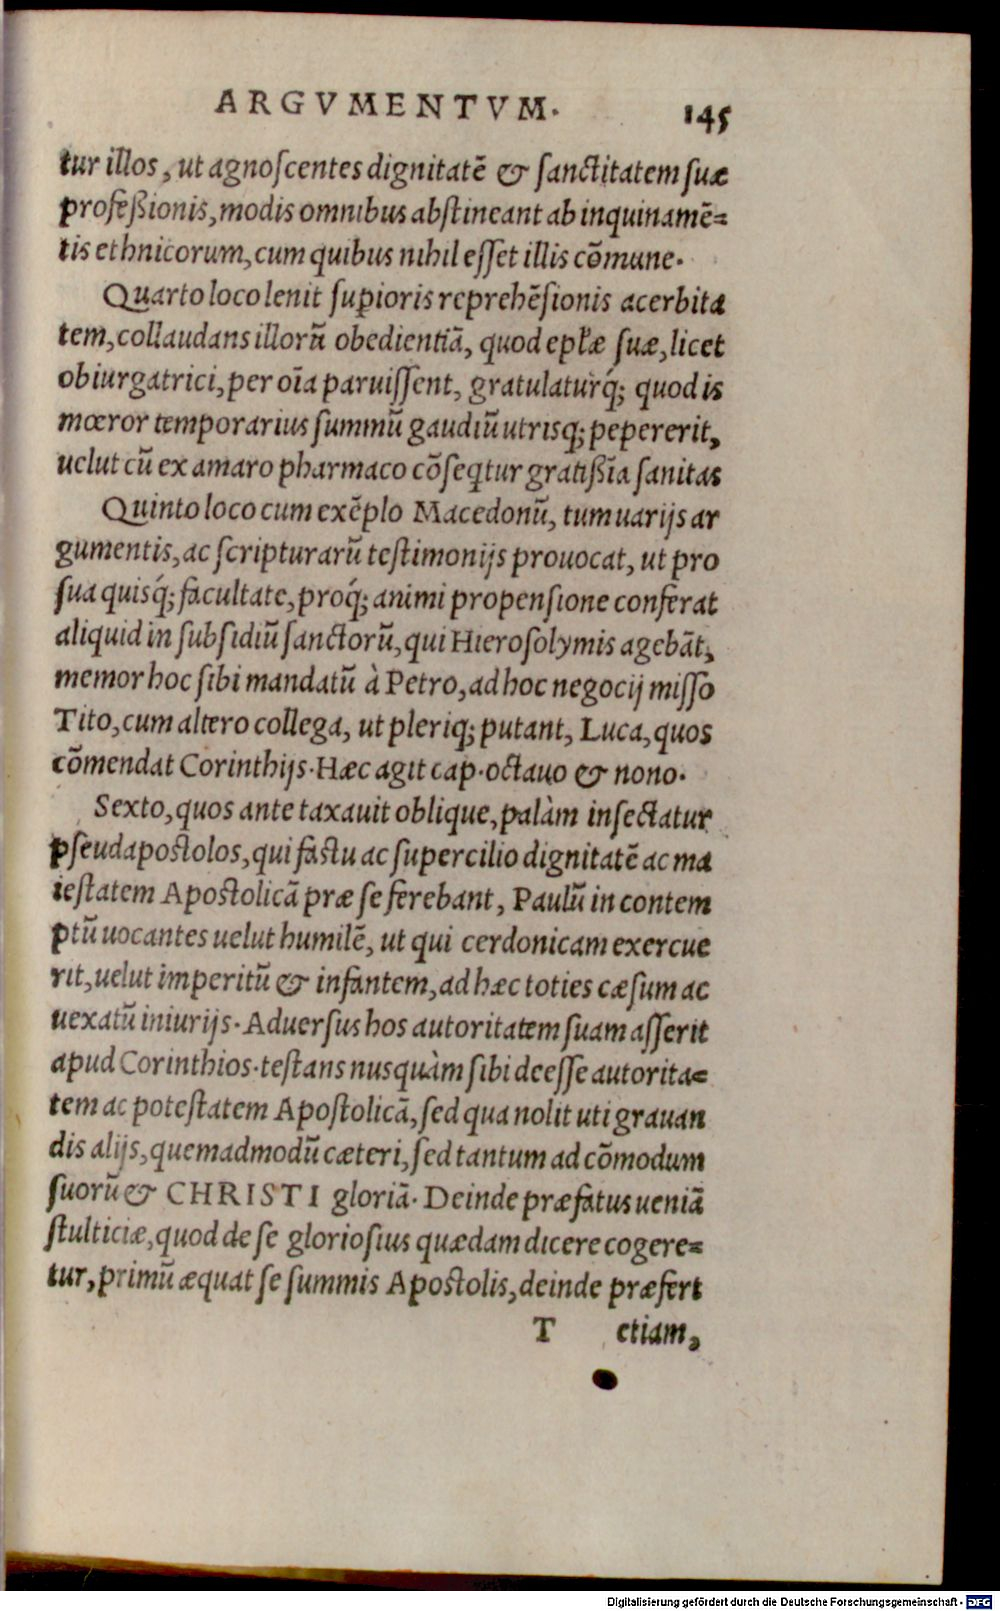 ARGVMENTVM. 145
tur illos, ut agnoſcentes dignitatē & ſanctitatem ſuæ
profeßionis, modis omnibus abſtineant ab inquinamē=
tis ethnicorum, cum quibus nihil eſſet illis cōmune.
Quarto loco lenit ſuꝑioris reprehēſionis acerbita
tem, collaudans illorū obedientiā, quod epł̃æ ſuæ, licet
obiurgatrici, per oīa paruiſſent, gratulaturq́; quod is
mœror temporarius ſummū gaudiū utrisq; pepererit,
uelut cū ex amaro pharmaco cōſeq̃tur gratißīa ſanitas
Quinto loco cum exēplo Macedonū, tum uarijs ar
gumentis, ac ſcripturarū teſtimonijs prouocat, ut pro
ſua quisq́; facultate, proq́; animi propenſione conferat
aliquid in ſubſidiū ſanctorū, qui Hieroſolymis agebāt,
memor hoc ſibi mandatū à Petro, ad hoc negocij miſſo
Tito, cum altero collega, ut pleriq; putant, Luca, quos
cōmendat Corinthijs. Hæc agit cap. octauo & nono.
Sexto, quos ante taxauit oblique, palàm inſectatur
pſeudapoſtolos, qui faſtu ac ſupercilio dignitatē ac ma
ieſtatem Apoſtolicā præ ſe ferebant, Paulū in contem
ptū uocantes uelut humilē, ut qui cerdonicam exercue
rit, uelut imperitū & infantem, ad hæc toties cæſum ac
uexatū iniurijs. Aduerſus hos autoritatem ſuam aſſerit
apud Corinthios. teſtans nusquàm ſibi deeſſe autorita=
tem ac poteſtatem Apoſtolicā, ſed qua nolit uti grauan
dis alijs, quemadmodū cæteri, ſed tantum ad cōmodum
ſuorū & CHRISTI gloriā. Deinde præfatus ueniā
ſtulticiæ, quod de ſe glorioſius quædam dicere cogere=
tur, primū æquat ſe ſummis Apoſtolis, deinde præfert
T etiam,
Digitalisierung gefördert durch die Deutsche Forschungsgemeinschaft - DFG